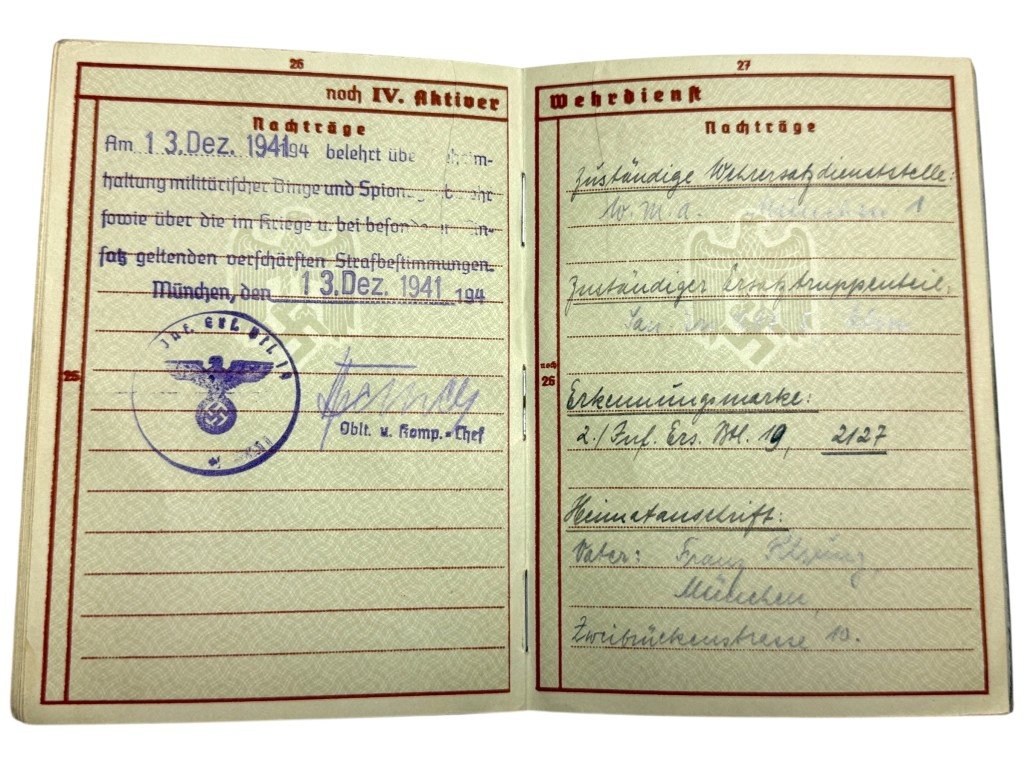 26
noch IV. Aktiver
Nachträge
Am 13. Dez. 1941 194 belehrt übe
haltung militärischer Dinge und Spion
sowie über die im Kriege u. bei besonde
satz geltenden verschärften Strafbestimmungen.
München, den 13. Dez. 1941 194
25
Oblt. u. Komp.-Chef
27
Wehrdienst
Nachträge
Zuständige Wehrersatzdienststelle:
W.M.A. München 1
Zuständiger Ersatztruppenteil:
noch
26
Erkennungsmarke:
2./Inf. Ers. Btl. 19, 2127
Heimatanschrift:
Vater: Franz
München,
Zweibrückenstrasse 10.